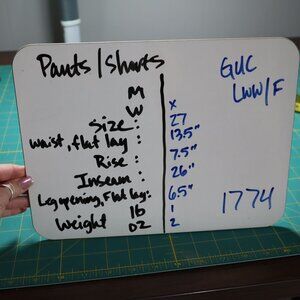 Pants/Shorts
GUC
LWW/F
M
W x
Size: 27
Waist, flat lay: 13.5"
Rise: 7.5"
Inseam: 26"
Leg opening, Flat lay: 6.5"
Weight lb 1
oz 2
1774